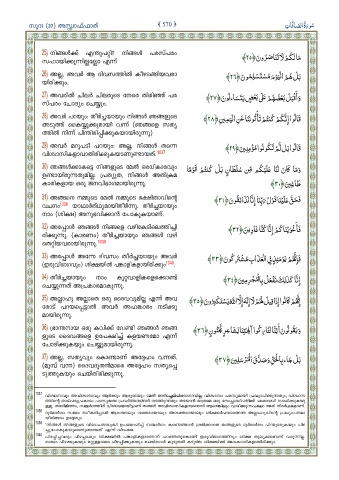 സൂറ (37) അസ്സ്വാഫ്ഫാത്ത്
570
سورة الصافات
25) നിങ്ങൾക്ക് എന്തുപറ്റി? നിങ്ങൾ പരസ്പരം
സഹായിക്കുന്നില്ലല്ലോ എന്ന്
مَا لَكُمْ لَا تَنَاصَرُونَ ﴿٢٥﴾
26) അല്ല, അവർ ആ ദിവസത്തിൽ കീഴടങ്ങിയവരാ
യിരിക്കും.
بَلْ هُمُ الْيَوْمَ مُسْتَسْلِمُونَ ﴿٢٦﴾
27) അവരിൽ ചിലർ ചിലരുടെ നേരെ തിരിഞ്ഞ് പര
സ്പരം ചോദ്യം ചെയ്യും.
وَأَقْبَلَ بَعْضُهُمْ عَلَى بَعْضٍ يَتَسَاءَلُونَ ﴿٢٧﴾
28) അവർ പറയും: തീർച്ചയായും നിങ്ങൾ ഞങ്ങളുടെ
അടുത്ത് കൈയ്യൂക്കുമായി വന്ന് (ഞങ്ങളെ സത്യ
ത്തിൽ നിന്ന് പിന്തിരിപ്പിക്കുകയായിരുന്നു)
قَالُوا إِنَّكُمْ كُنْتُمْ تَأْتُونَنَا عَنِ الْيَمِينِ ﴿٢٨﴾
29) അവർ മറുപടി പറയും: അല്ല, നിങ്ങൾ തന്നെ
വിശ്വാസികളാവാതിരിക്കുകയാണുണ്ടായത്.
قَالُوا بَلْ لَمْ تَكُونُوا مُؤْمِنِينَ ﴿٢٩﴾
30) ഞങ്ങൾക്കാകട്ടെ നിങ്ങളുടെ മേൽ ഒരധികാരവും
ഉണ്ടായിരുന്നതുമില്ല. പ്രത്യുത, നിങ്ങൾ അതിക്രമ
കാരികളായ ഒരു ജനവിഭാഗമായിരുന്നു.
وَمَا كَانَ لَنَا عَلَيْكُمْ مِنْ سُلْطَانٍ بَلْ كُنْتُمْ قَوْمًا
طَاغِينَ ﴿٣٠﴾
31) അങ്ങനെ നമ്മുടെ മേൽ നമ്മുടെ രക്ഷിതാവിന്റെ
വചനം യാഥാർത്ഥ്യമായിതീർന്നു. തീർച്ചയായും
നാം (ശിക്ഷ) അനുഭവിക്കാൻ പോകുകയാണ്.
فَحَقَّ عَلَيْنَا قَوْلُ رَبِّنَا إِنَّا لَذَائِقُونَ ﴿٣١﴾
32) അപ്പോൾ ഞങ്ങൾ നിങ്ങളെ വഴികേടിലെത്തിച്ചി
രിക്കുന്നു. (കാരണം) തീർച്ചയായും ഞങ്ങൾ വഴി
തെറ്റിയവരായിരുന്നു.
فَأَغْوَيْنَاكُمْ إِنَّا كُنَّا غَاوِينَ ﴿٣٢﴾
33) അപ്പോൾ അന്നേ ദിവസം തീർച്ചയായും അവർ
(ഇരുവിഭാഗവും) ശിക്ഷയിൽ പങ്കാളികളായിരിക്കും
فَإِنَّهُمْ يَوْمَئِذٍ فِي الْعَذَابِ مُشْتَرِكُونَ ﴿٣٣﴾
34) തീർച്ചയായും നാം കുറ്റവാളികളെക്കൊണ്ട്
ചെയ്യുന്നത് അപ്രകാരമാകുന്നു.
إِنَّا كَذَلِكَ نَفْعَلُ بِالْمُجْرِمِينَ ﴿٣٤﴾
35) അല്ലാഹു അല്ലാതെ ഒരു ദൈവവുമില്ല എന്ന് അവ
രോട് പറയപ്പെട്ടാൽ അവർ അഹങ്കാരം നടിക്കു
മായിരുന്നു.
إِنَّهُمْ كَانُوا إِذَا قِيلَ لَهُمْ لَا إِلَهَ إِلَّا اللَّهُ يَسْتَكْبِرُونَ ﴿٣٥﴾
36) ഭ്രാന്തനായ ഒരു കവിക്ക് വേണ്ടി ഞങ്ങൾ ഞങ്ങ
ളുടെ ദൈവങ്ങളെ ഉപേക്ഷിച്ച് കളയണമോ എന്ന്
ചോദിക്കുകയും ചെയ്യുമായിരുന്നു.
وَيَقُولُونَ أَئِنَّا لَتَارِكُوا آلِهَتِنَا لِشَاعِرٍ مَجْنُونٍ ﴿٣٦﴾
37) അല്ല, സത്യവും കൊണ്ടാണ് അദ്ദേഹം വന്നത്.
(മുമ്പ് വന്ന) ദൈവദൂതൻമാരെ അദ്ദേഹം സത്യപ്പെ
ടുത്തുകയും ചെയ്തിരിക്കുന്നു.
بَلْ جَاءَ بِالْحَقِّ وَصَدَّقَ الْمُرْسَلِينَ ﴿٣٧﴾